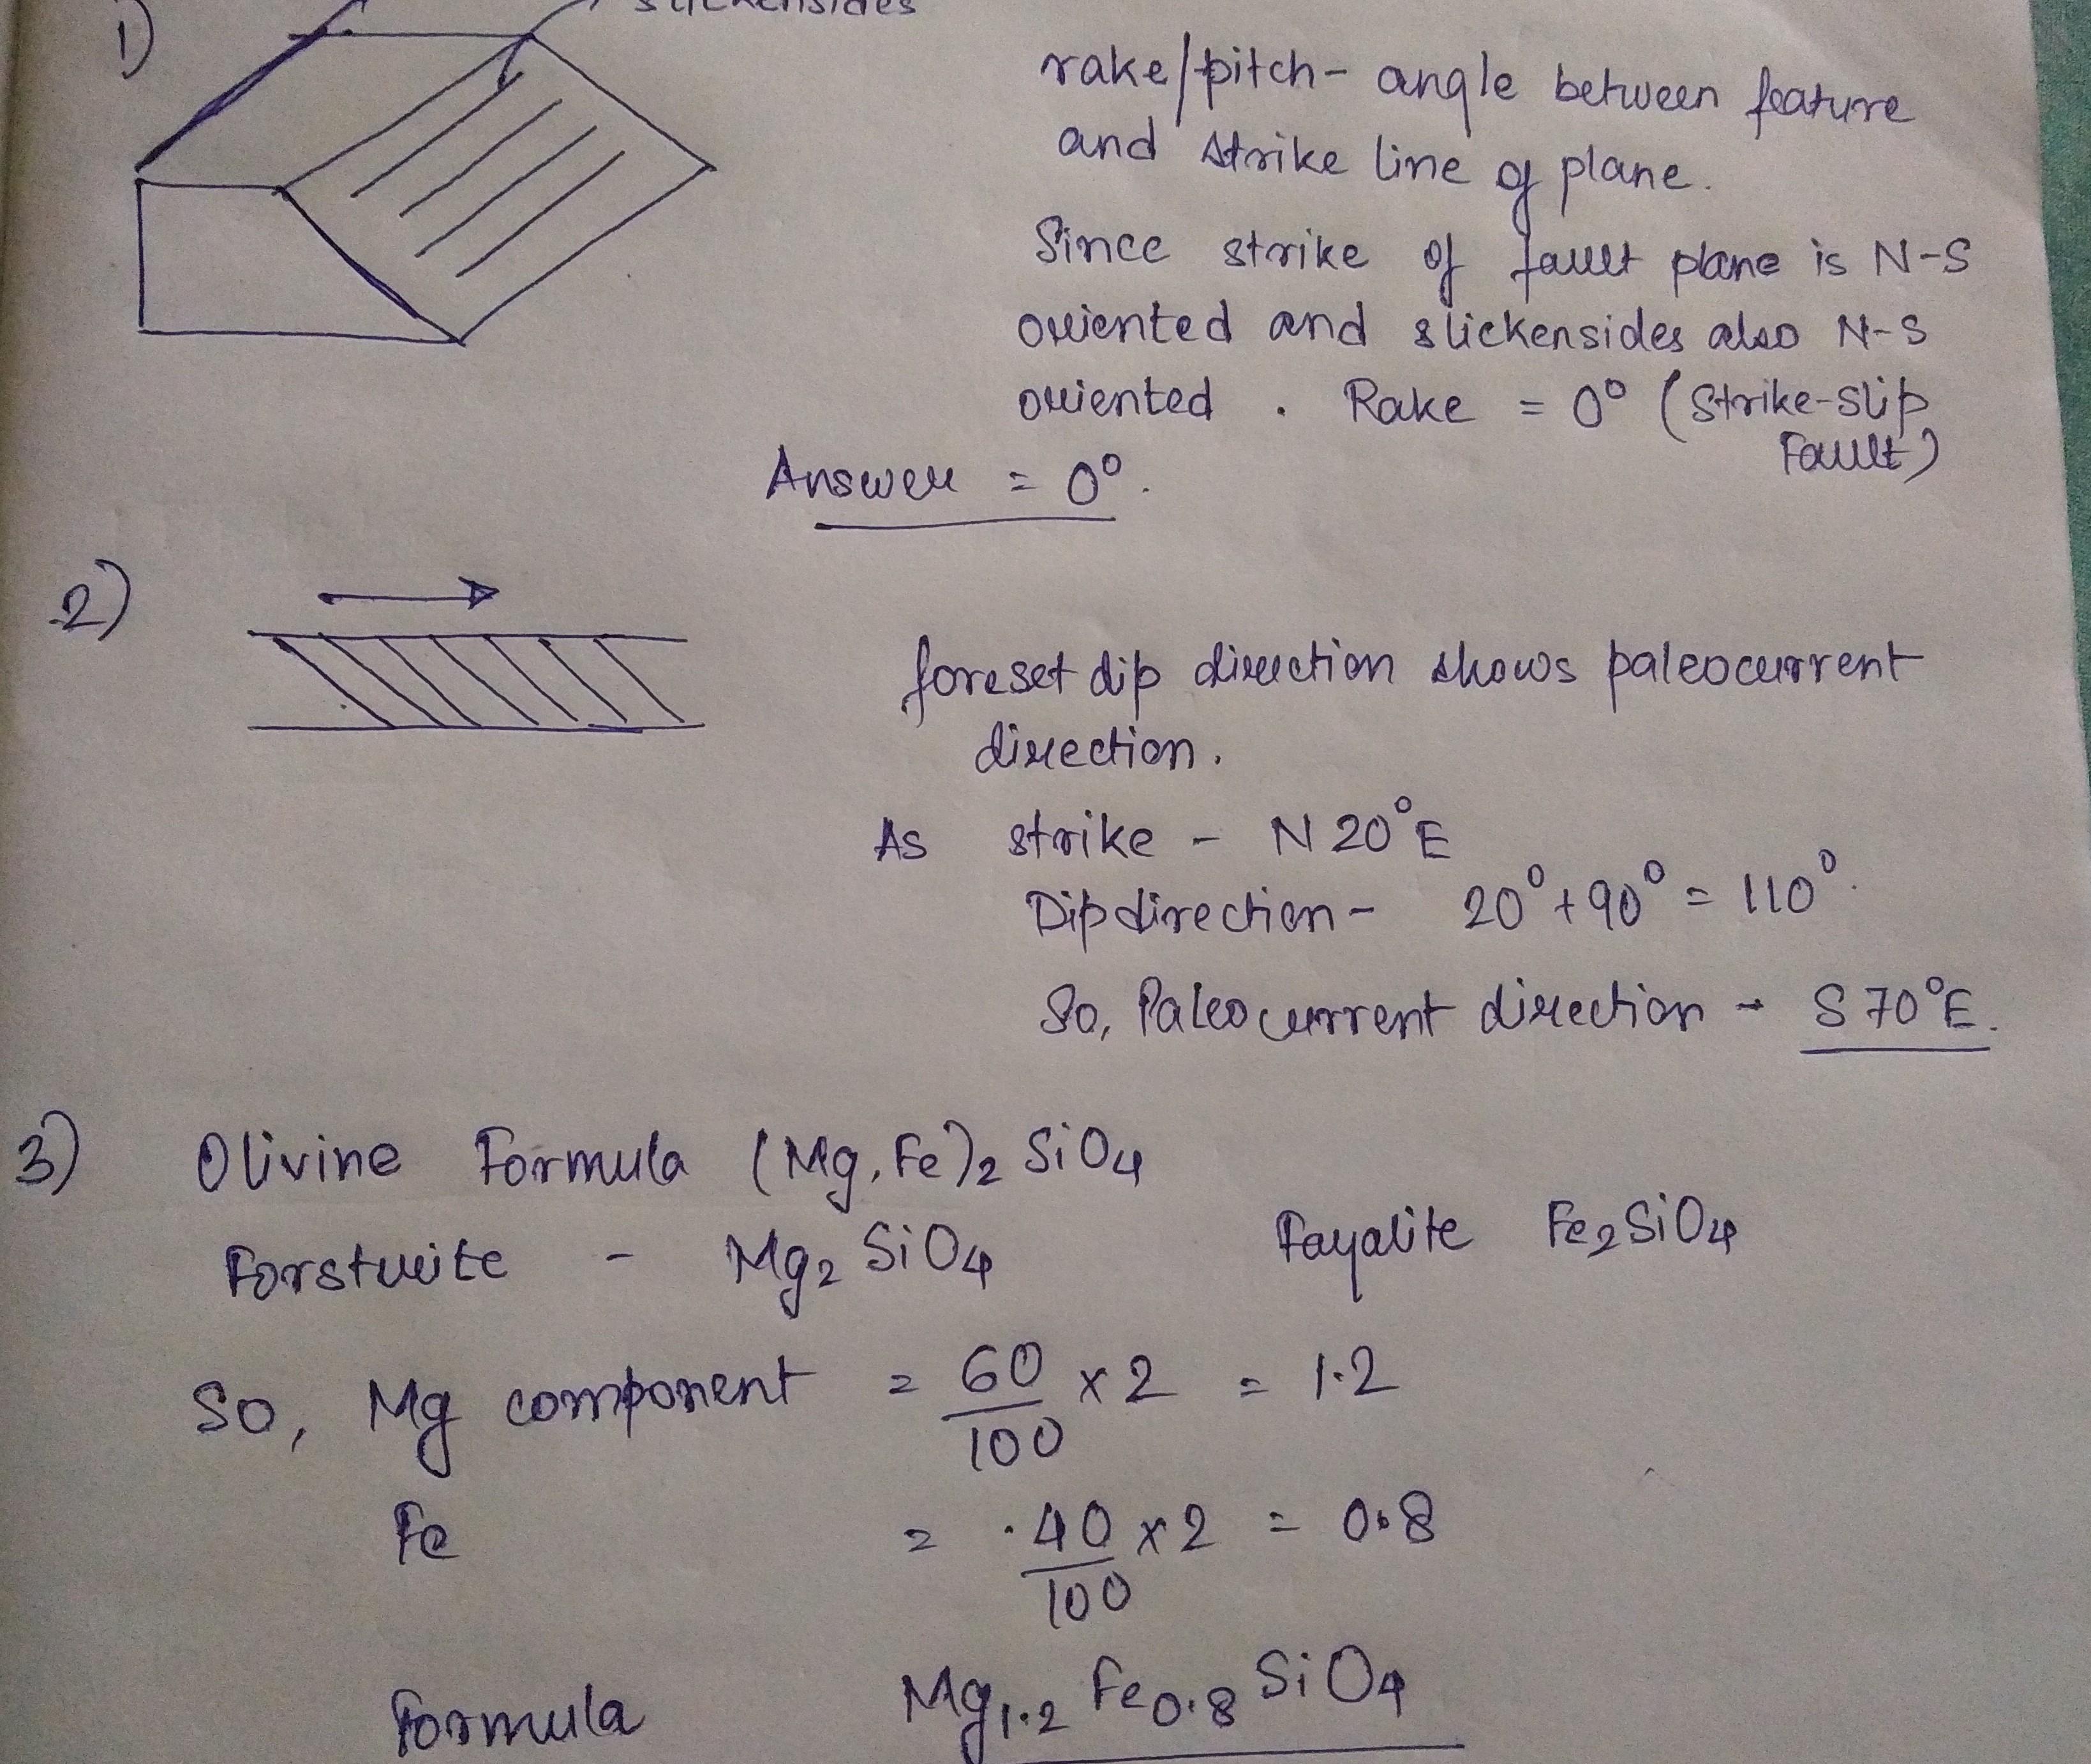 1)
slickensides
rake/pitch- angle between feature
and strike line of plane.
Since strike of fault plane is N-S
oriented and slickensides also N-S
oriented . Rake = 0° (Strike-slip
Fault)
Answer = 0°.
2)
foreset dip direction shows paleocurrent
direction.
As strike - N 20°E
Dip direction - 20°+90° = 110°.
So, Paleocurrent direction - S 70°E.
3) Olivine Formula (Mg, Fe)2 SiO4
Forsterite - Mg2 SiO4 Fayalite Fe2SiO4
So, Mg component = 60/100 x 2 = 1.2
Fe = 40/100 x 2 = 0.8
Formula Mg1.2 Fe0.8 SiO4